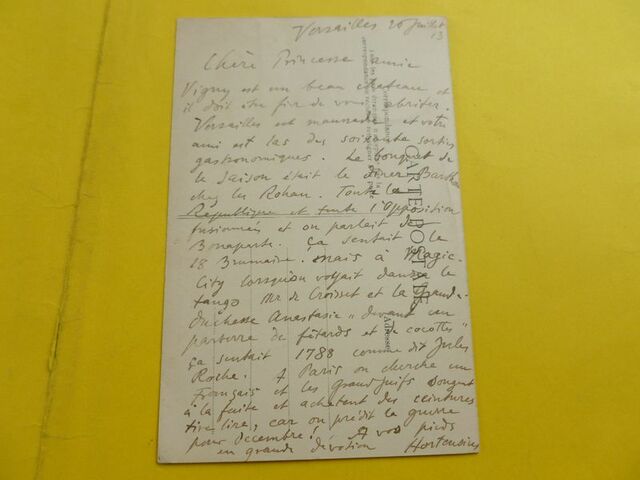 Versailles 26 Juillet
13
Chère Princesse amie
Vigny est un beau chateau et
il doit être fier de vous abriter.
Versailles est maussade et votre
ami est las des soixante sorties
gastronomiques. Le bouquet de
la saison était le diner Barthou
chez les Rohan. Toute la
République et toute l'opposition
fusionnés et on parlait de
Bonaparte. Ça sentait le
18 Brumaire. Mais à Magic-
City lorsqu'on voyait danser le
tango Mr de Croisset et la Grande
duchesse Anastasie "devant un
parterre de fêtards et de cocottes"
ça sentait 1788 comme dit Jules
Roche. A Paris on cherche un
Français et les grands juifs songent
à la fuite et achetent des ceintures
tire lire, car on prédit la guerre
pour Décembre! A vos pieds
en grande dévotion Hortensius
CARTE POSTALE
Adresse